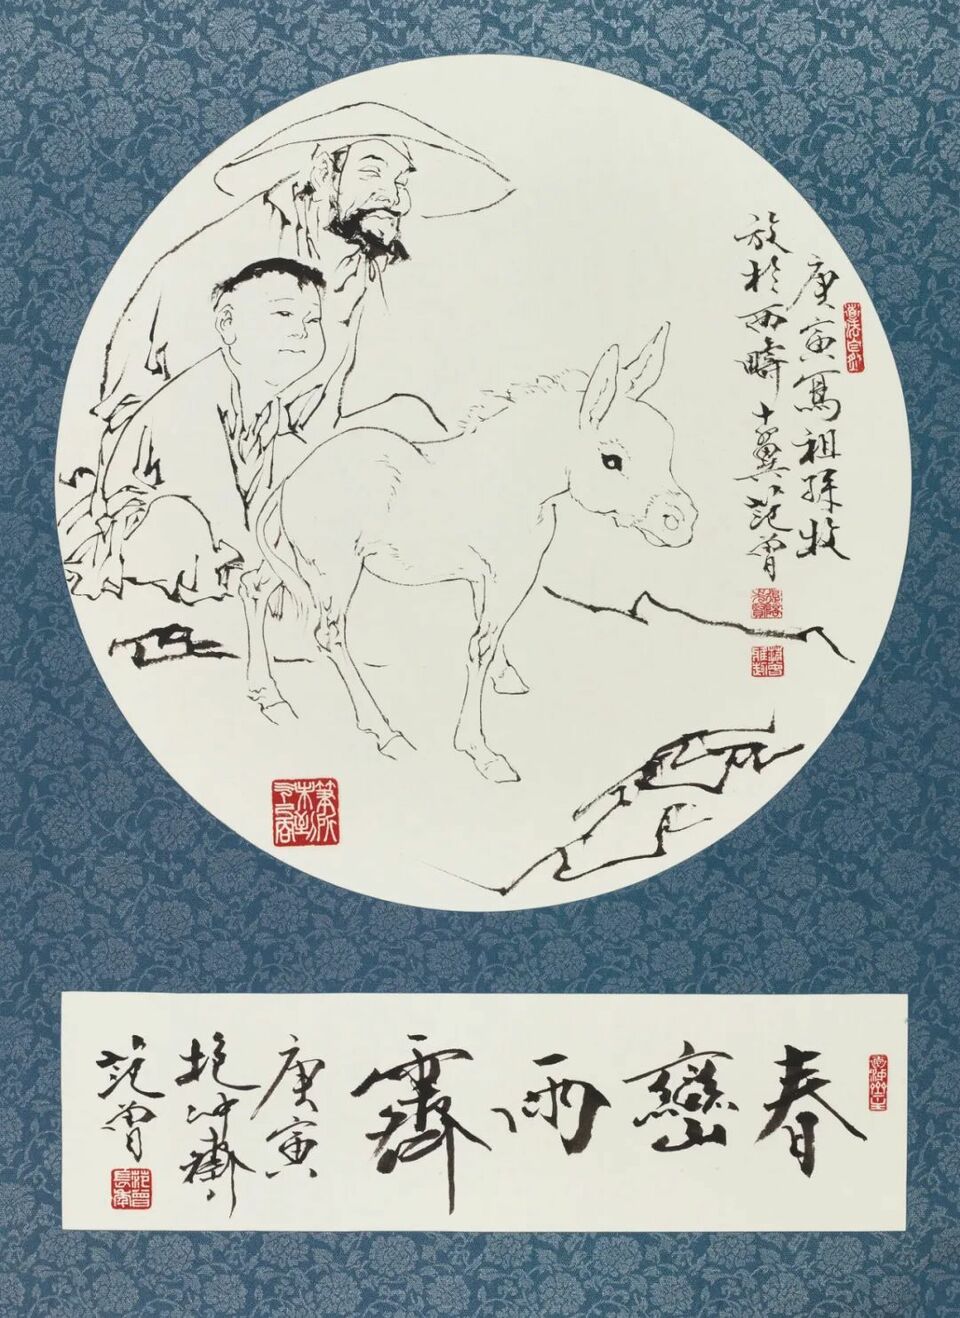 庚寅寫祖孫牧
放於西疇十翼范曾
春巒雨霽
庚寅
抱沖齋
范曾